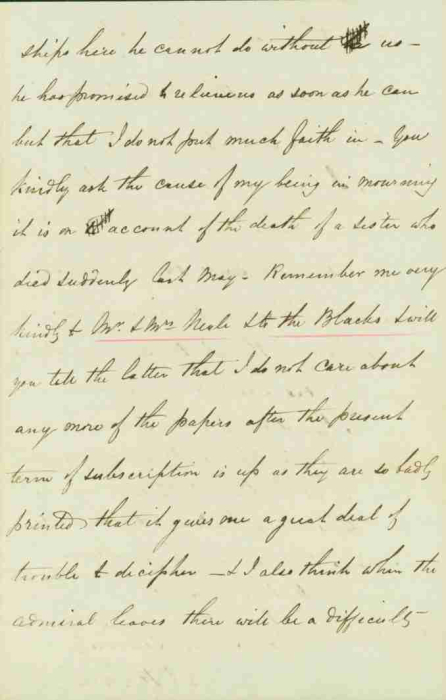 ships here he cannot do without us –
he has promised to relieve us as soon as he can
but that I do not put much faith in – You
kindly ask the cause of my being in mourning
it is on account of the death of a sister who
died suddenly last May – Remember me very
kindly to Mr. & Mrs Neale & to the Blacks & will
you tell the latter that I do not care about
any more of the papers after the present
term of subscription is up as they are so badly
printed that it gives me a great deal of
trouble to decipher – & I also think when the
admiral leaves there will be a difficulty